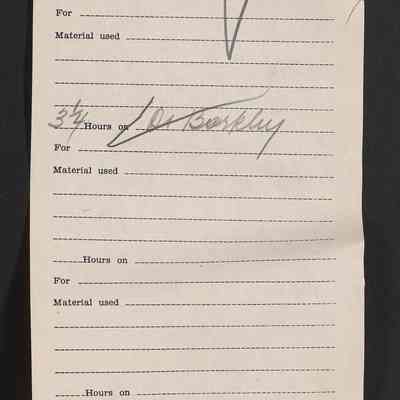 For
Material used
3 1/4 Hours on Dr Barkley
For
Material used
Hours on
For
Material used
Hours on